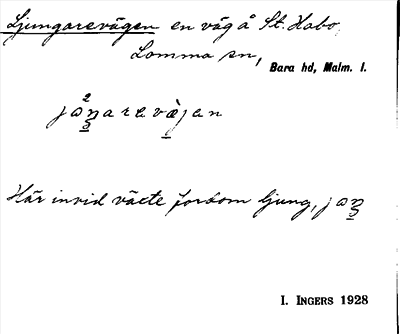 Ljungarevägen en väg å St. Habo,
Lomma sn,
Bara hd, Malm. l.
Här invid växte fordom ljung,
I. INGERS 1928